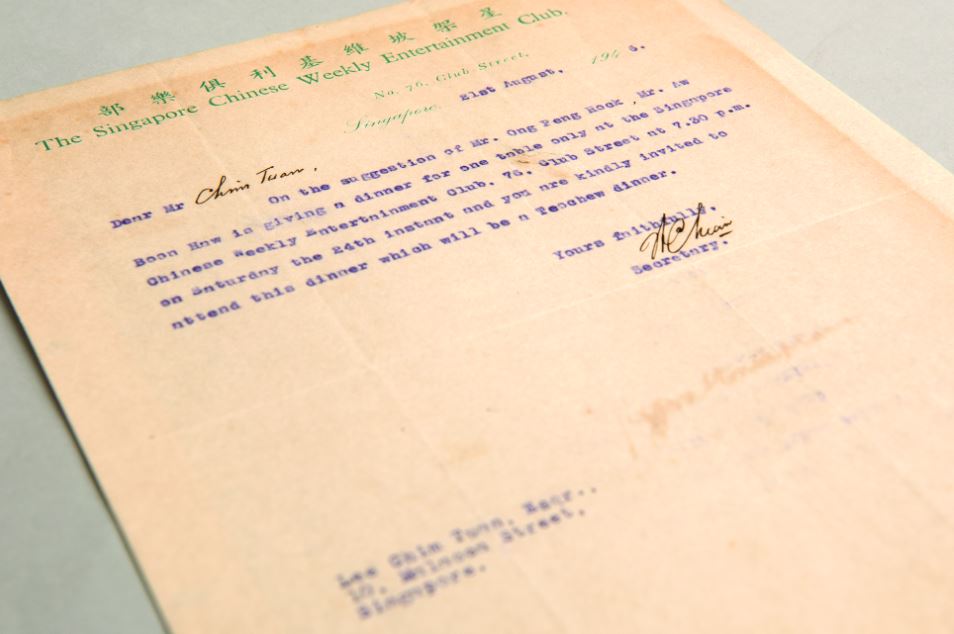 星架坡維基利俱樂部
The Singapore Chinese Weekly Entertainment Club.
No. 76, Club Street,
Singapore, 21st August, 1946.
Dear Mr Chim Tuan,
On the suggestion of Mr. Ong Peng Hock, Mr. Aw
Boon Haw is giving a dinner for one table only at the Singapore
Chinese Weekly Entertainment Club, 76, Club Street at 7.30 p.m.
on Saturday the 24th instant and you are kindly invited to
attend this dinner which will be a Teochew dinner.
Yours faithfully,
Secretary.
Lee Chim Tuan, Esqr.,
10, Malacca Street,
Singapore.